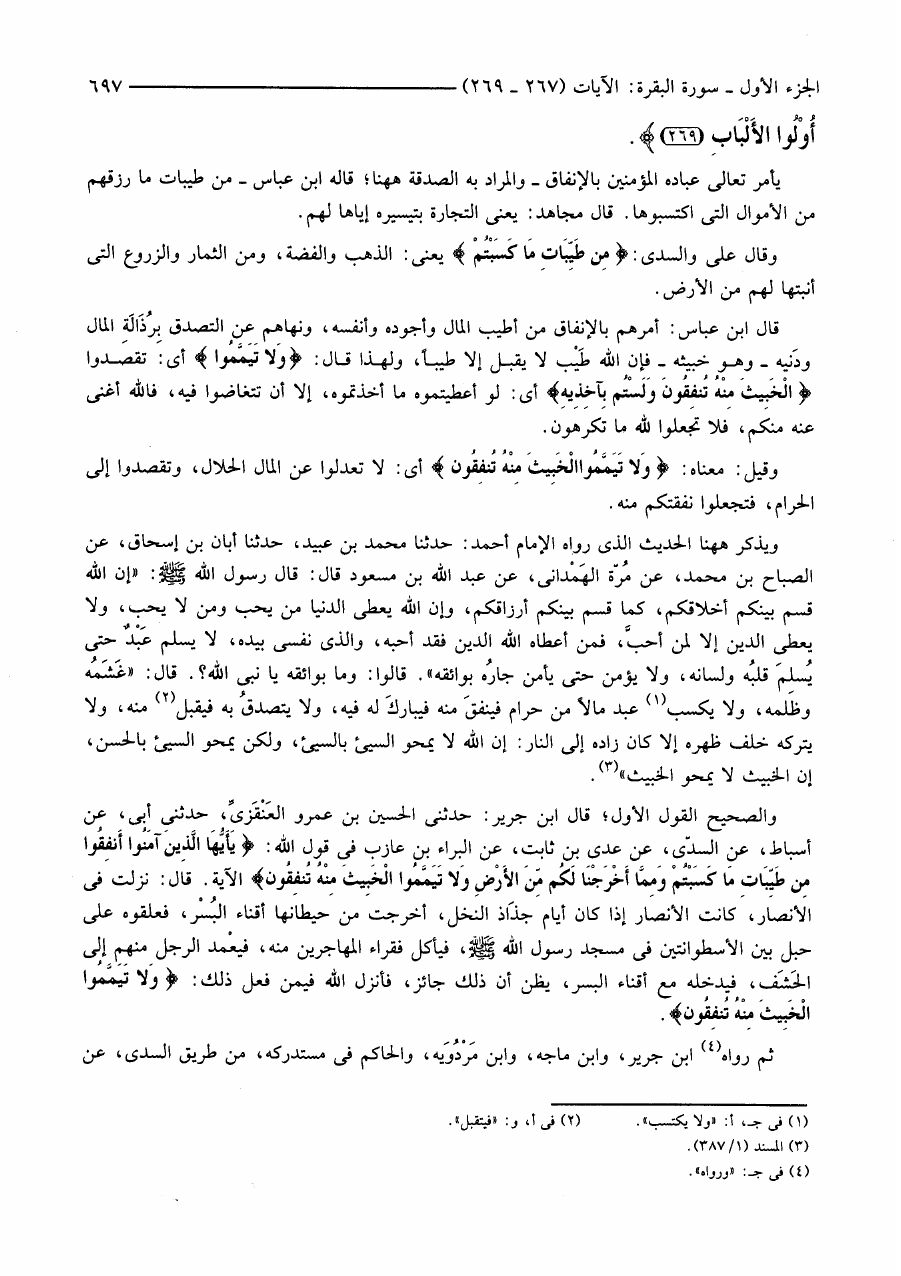 الجزء الأول ـ سورة البقرة: الآيات (٢٦٧ ـ ٢٦٩) ـــــــــــــــــــــ ٦٩٧
أُوْلُوا الأَلْبَابِ (٢٦٩) ﴾.
يأمر تعالى عباده المؤمنين بالإنفاق ـ والمراد به الصدقة ههنا؛ قاله ابن عباس ـ من طيبات ما رزقهم
من الأموال التى اكتسبوها. قال مجاهد: يعنى التجارة بتيسيره إياها لهم.
وقال على والسدى: ﴿ مِن طَيِّبَاتِ مَا كَسَبْتُمْ ﴾ يعنى: الذهب والفضة، ومن الثمار والزروع التى
أنبتها لهم من الأرض.
قال ابن عباس: أمرهم بالإنفاق من أطيب المال وأجوده وأنفسه، ونهاهم عن التصدق بِرُذَالَةِ المال
ودَنيه ـ وهو خبيثه ـ فإن الله طَيْب لا يقبل إلا طيباً، ولهذا قال: ﴿ وَلا تَيَمَّمُوا ﴾ أى: تقصدوا
﴿ الْخَبِيثَ مِنْهُ تُنفِقُونَ وَلَسْتُم بِآخِذِيهِ﴾ أى: لو أعطيتموه ما أخذتموه، إلا أن تتغاضوا فيه، فالله أغنى
عنه منكم، فلا تجعلوا لله ما تكرهون.
وقيل: معناه: ﴿ وَلا تَيَمَّمُوا الْخَبِيثَ مِنْهُ تُنفِقُون ﴾ أى: لا تعدلوا عن المال الحلال، وتقصدوا إلى
الحرام، فتجعلوا نفقتكم منه.
ويذكر ههنا الحديث الذى رواه الإمام أحمد: حدثنا محمد بن عبيد، حدثنا أبان بن إسحاق، عن
الصباح بن محمد، عن مُرّة الهَمْدانى، عن عبد الله بن مسعود قال: قال رسول الله ﷺ: «إن الله
قسم بينكم أخلاقكم، كما قسم بينكم أرزاقكم، وإن الله يعطى الدنيا من يحب ومن لا يحب، ولا
يعطى الدين إلا لمن أحبَّ، فمن أعطاه الله الدين فقد أحبه، والذى نفسى بيده، لا يسلم عَبْدٌ حتى
يُسلمَ قلبُه ولسانه، ولا يؤمن حتى يأمن جارُه بوائقه». قالوا: وما بوائقه يا نبى الله؟. قال: «غَشَمُه
وظلمه، ولا يكسب(١) عبد مالاً من حرام فينفقَ منه فيباركَ له فيه، ولا يتصدقُ به فيقبل(٢) منه، ولا
يتركه خلف ظهره إلا كان زاده إلى النار: إن الله لا يمحو السيئ بالسيئ، ولكن يمحو السيئ بالحسن،
إن الخبيث لا يمحو الخبيث»(٣).
والصحيح القول الأول؛ قال ابن جرير: حدثنى الحسين بن عمرو العَنْقَزِىُّ، حدثنى أبى، عن
أسباط، عن السدّى، عن عدى بن ثابت، عن البراء بن عازب فى قول الله: ﴿ يَأَيُّهَا الَّذِينَ آمَنُوا أَنفِقُوا
مِن طَيِّبَاتِ مَا كَسَبْتُمْ وَمِمَّا أَخْرَجْنَا لَكُم مِّنَ الأَرْضِ وَلا تَيَمَّمُوا الْخَبِيثَ مِنْهُ تُنفِقُون﴾ الآية. قال: نزلت فى
الأنصار، كانت الأنصار إذا كان أيام جذَاذ النخل، أخرجت من حيطانها أقناء البُسْر، فعلقوه على
حبل بين الأسطوانتين فى مسجد رسول الله ﷺ، فيأكل فقراء المهاجرين منه، فيعْمد الرجل منهم إلى
الحَشَف، فيدخله مع أقناء البسر، يظن أن ذلك جائز، فأنزل الله فيمن فعل ذلك: ﴿ وَلا تَيَمَّمُوا
الْخَبِيثَ مِنْهُ تُنفِقُون﴾.
ثم رواه(٤) ابن جرير، وابن ماجه، وابن مَرْدُوَيه، والحاكم فى مستدركه، من طريق السدى، عن
(١) فى جـ، أ: «ولا يكتسب». (٢) فى أ، و: «فيتقبل».
(٣) المسند (١/ ٣٨٧).
(٤) فى جـ: «ورواه».